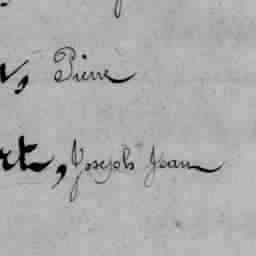 , Pierre
rt, Joseph Jean